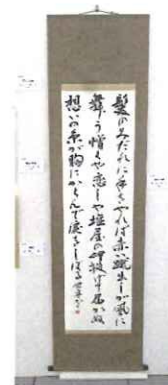 髪のみだれに手をやれば赤い蹴出しが風に
舞う憎くや恋しや塩屋の岬投げて届かぬ
想いの糸が胸にからんで涙をしぼる